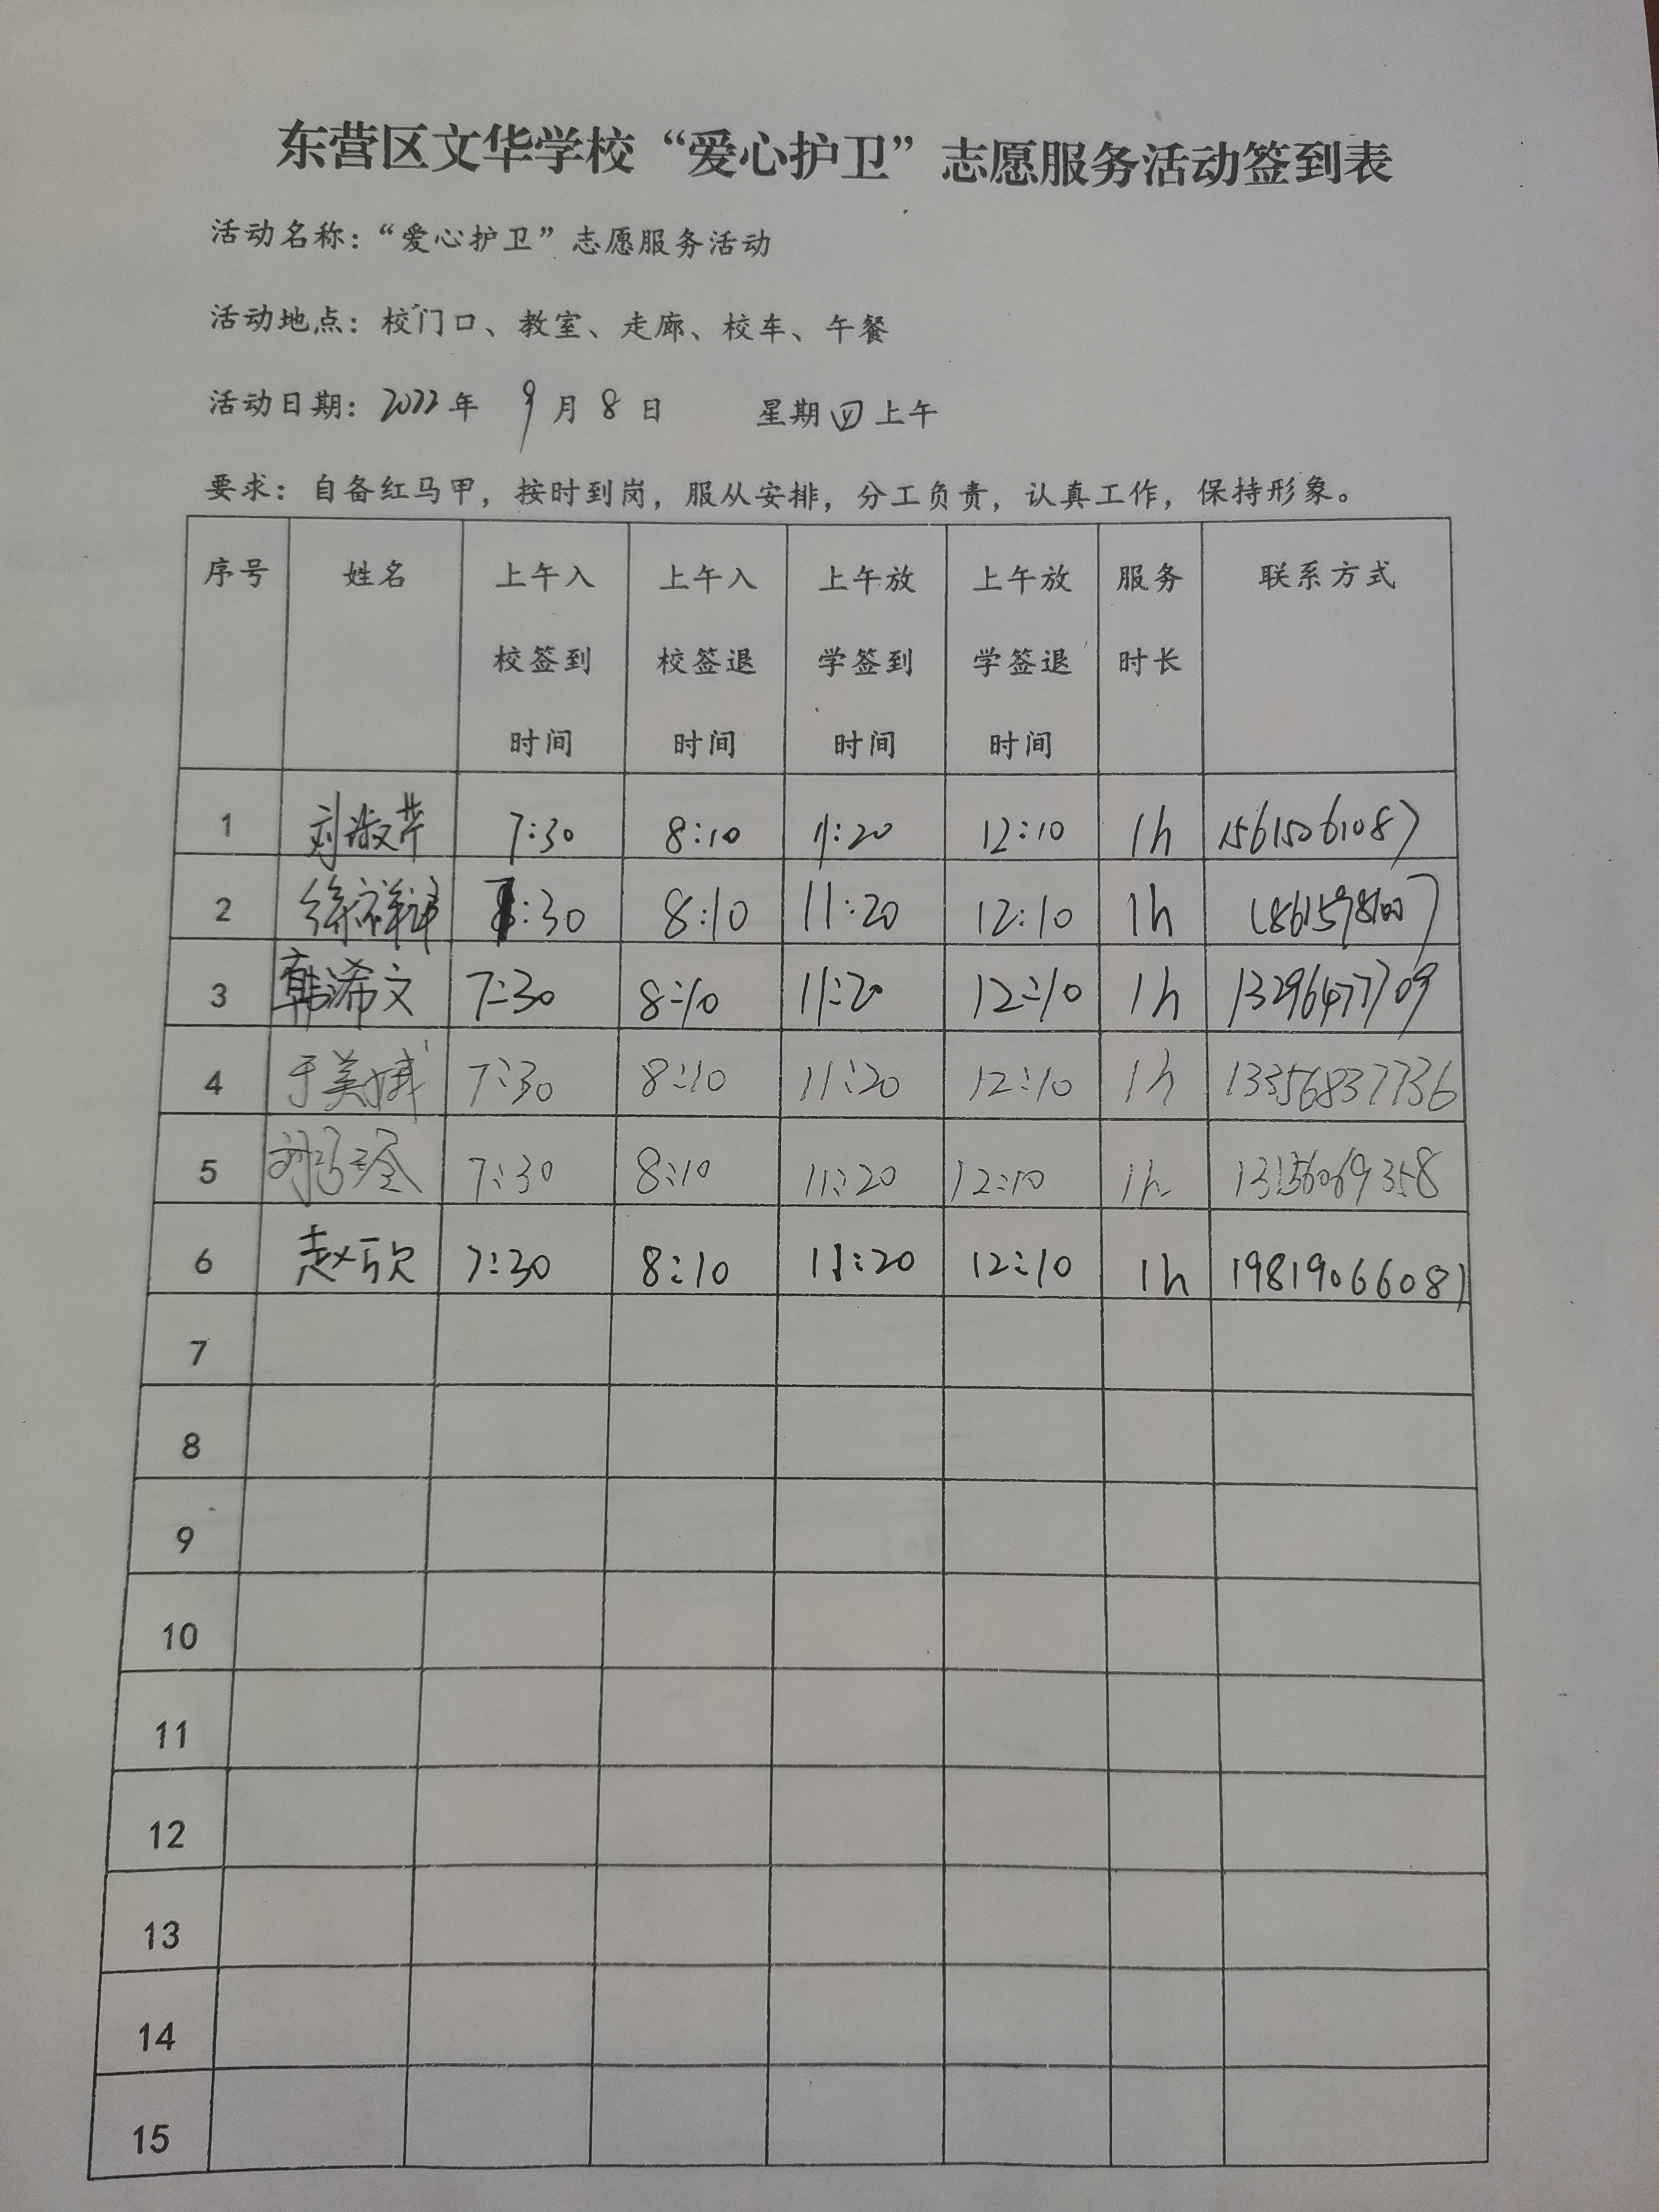 东营区文华学校“爱心护卫”志愿服务活动签到表
活动名称：“爱心护卫”志愿服务活动
活动地点：校门口、教室、走廊、校车、午餐
活动日期：2022年 9月8日 星期四上午
要求：自备红马甲，按时到岗，服从安排，分工负责，认真工作，保持形象。
序号 姓名 上午入校签到时间 上午入校签退时间 上午放学签到时间 上午放学签退时间 服务时长 联系方式
1 刘淑芹 7:30 8:10 11:20 12:10 1h 15615061087
2 徐祥 :30 8:10 11:20 12:10 1h
3 韩浠文 7:30 8:10 11:20 12:10 1h 13296477709
4 于美娥 7:30 8:10 11:20 12:10 1h 13356837736
5 7:30 8:10 11:20 12:10 1h 13156069358
6 赵欣 7:30 8:10 11:20 12:10 1h 19819066087
7
8
9
10
11
12
13
14
15